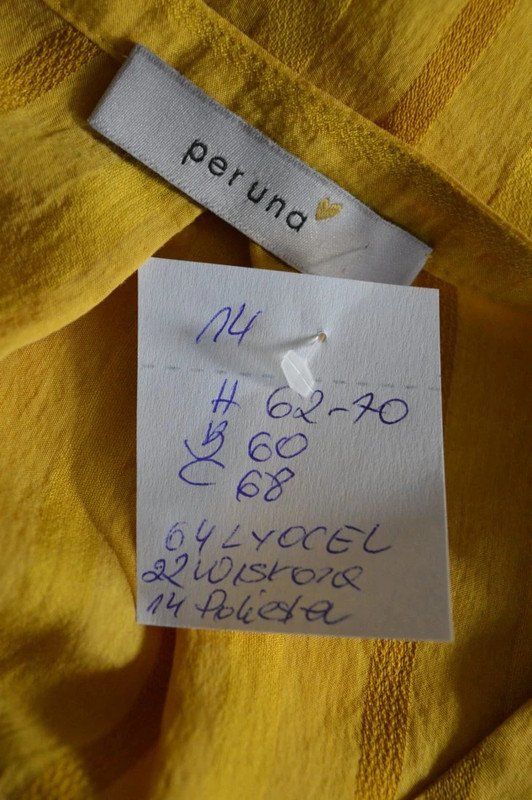 peruna
14
A 62-70
B 60
C 68
64 LYOCEL
22 WISKOZA
14 Poliesta